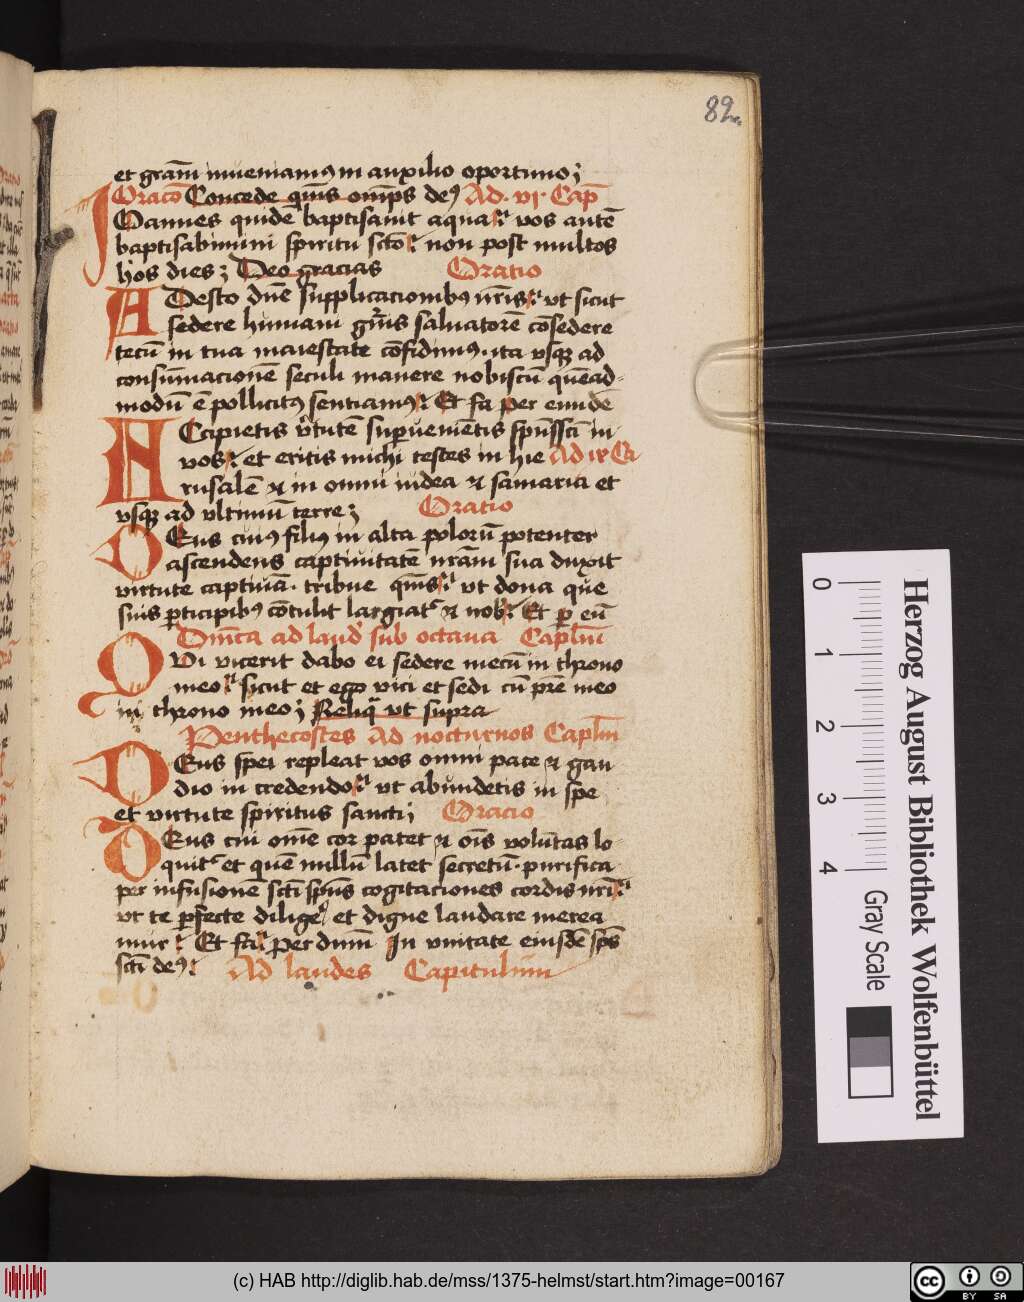 82
et gra͞m inueniamus in auxilio oportuno;
Oraco͞ Concede qu͞ms om͞ps deꝰ Ad · vj · Cap͞
IOannes quide͞ baptisauit aqua: vos aute͞
baptisabimini spiritu sc͞to: non post multos
hos dies; Deo gracias Oratio
ADesto dn͞e supplicacionibꝰ nr͞is: vt sicut
sedere humani gn͞ris saluatore͞ co͞sedere
tecu͞ in tua maiestate co͞fidimꝰ · ita vsqꝫ ad
consu͞macione͞ seculi manere nobiscu͞ que͞ad-
modu͞ e͞ pollicitꝰ sentiamꝰ: Et fa per eunde͞
ACcipietis v͛tute͞ sup͛ueni͞etis sp͞uss͞ci in
vos: et eritis michi testes in hie Ad ix Ca
rusale͞ ⁊ in omni iudea ⁊ samaria et
vsqꝫ ad vltimu͞ terre; Oratio
DEus cuiꝰ filiꝰ in alta poloru͞ potenter
ascendens captiuitate͞ nr͞am sua duxit
virtute captiua͞ · tribue qm͞s: vt dona que
suis p͛ticipibꝰ co͞tulit largiat͛ ⁊ nob͛: Et ꝑ eu͞
Dn͞ica ad laud͛ sub octaua Caplm͞
QVi vicerit dabo ei sedere mecu͞ in throno
meo: sicut et ego vici et sedi cu͞ pr͞e meo
in throno meo; Reliq͛ vt supra
Penthecostes Ad nocturnos Caplm͞
DEus spei repleat vos omni pace ⁊ gau
dio in credendo: vt abundetis in spe
et virtute spiritus sancti; Oracio
DEus cui om͞e cor patet ⁊ o͞is volu͞tas lo
quit͛ et que͞ nullu͞ latet secretu͞ · purifica
per infusione͞ sc͞ti sp͞us cogitaciones cordis nr͞i:
vt te p͛fecte dilige͛ et digne laudare merea
mur: Et fa: per dnm͞ In vnitate eiusde͞ sp͞s
sc͞ti deꝰ: Ad laudes Capitulum
0 1 2 3 4
Gray Scale
Herzog August Bibliothek Wolfenbüttel
(c) HAB http://diglib.hab.de/mss/1375-helmst/start.htm?image=00167
cc BY SA